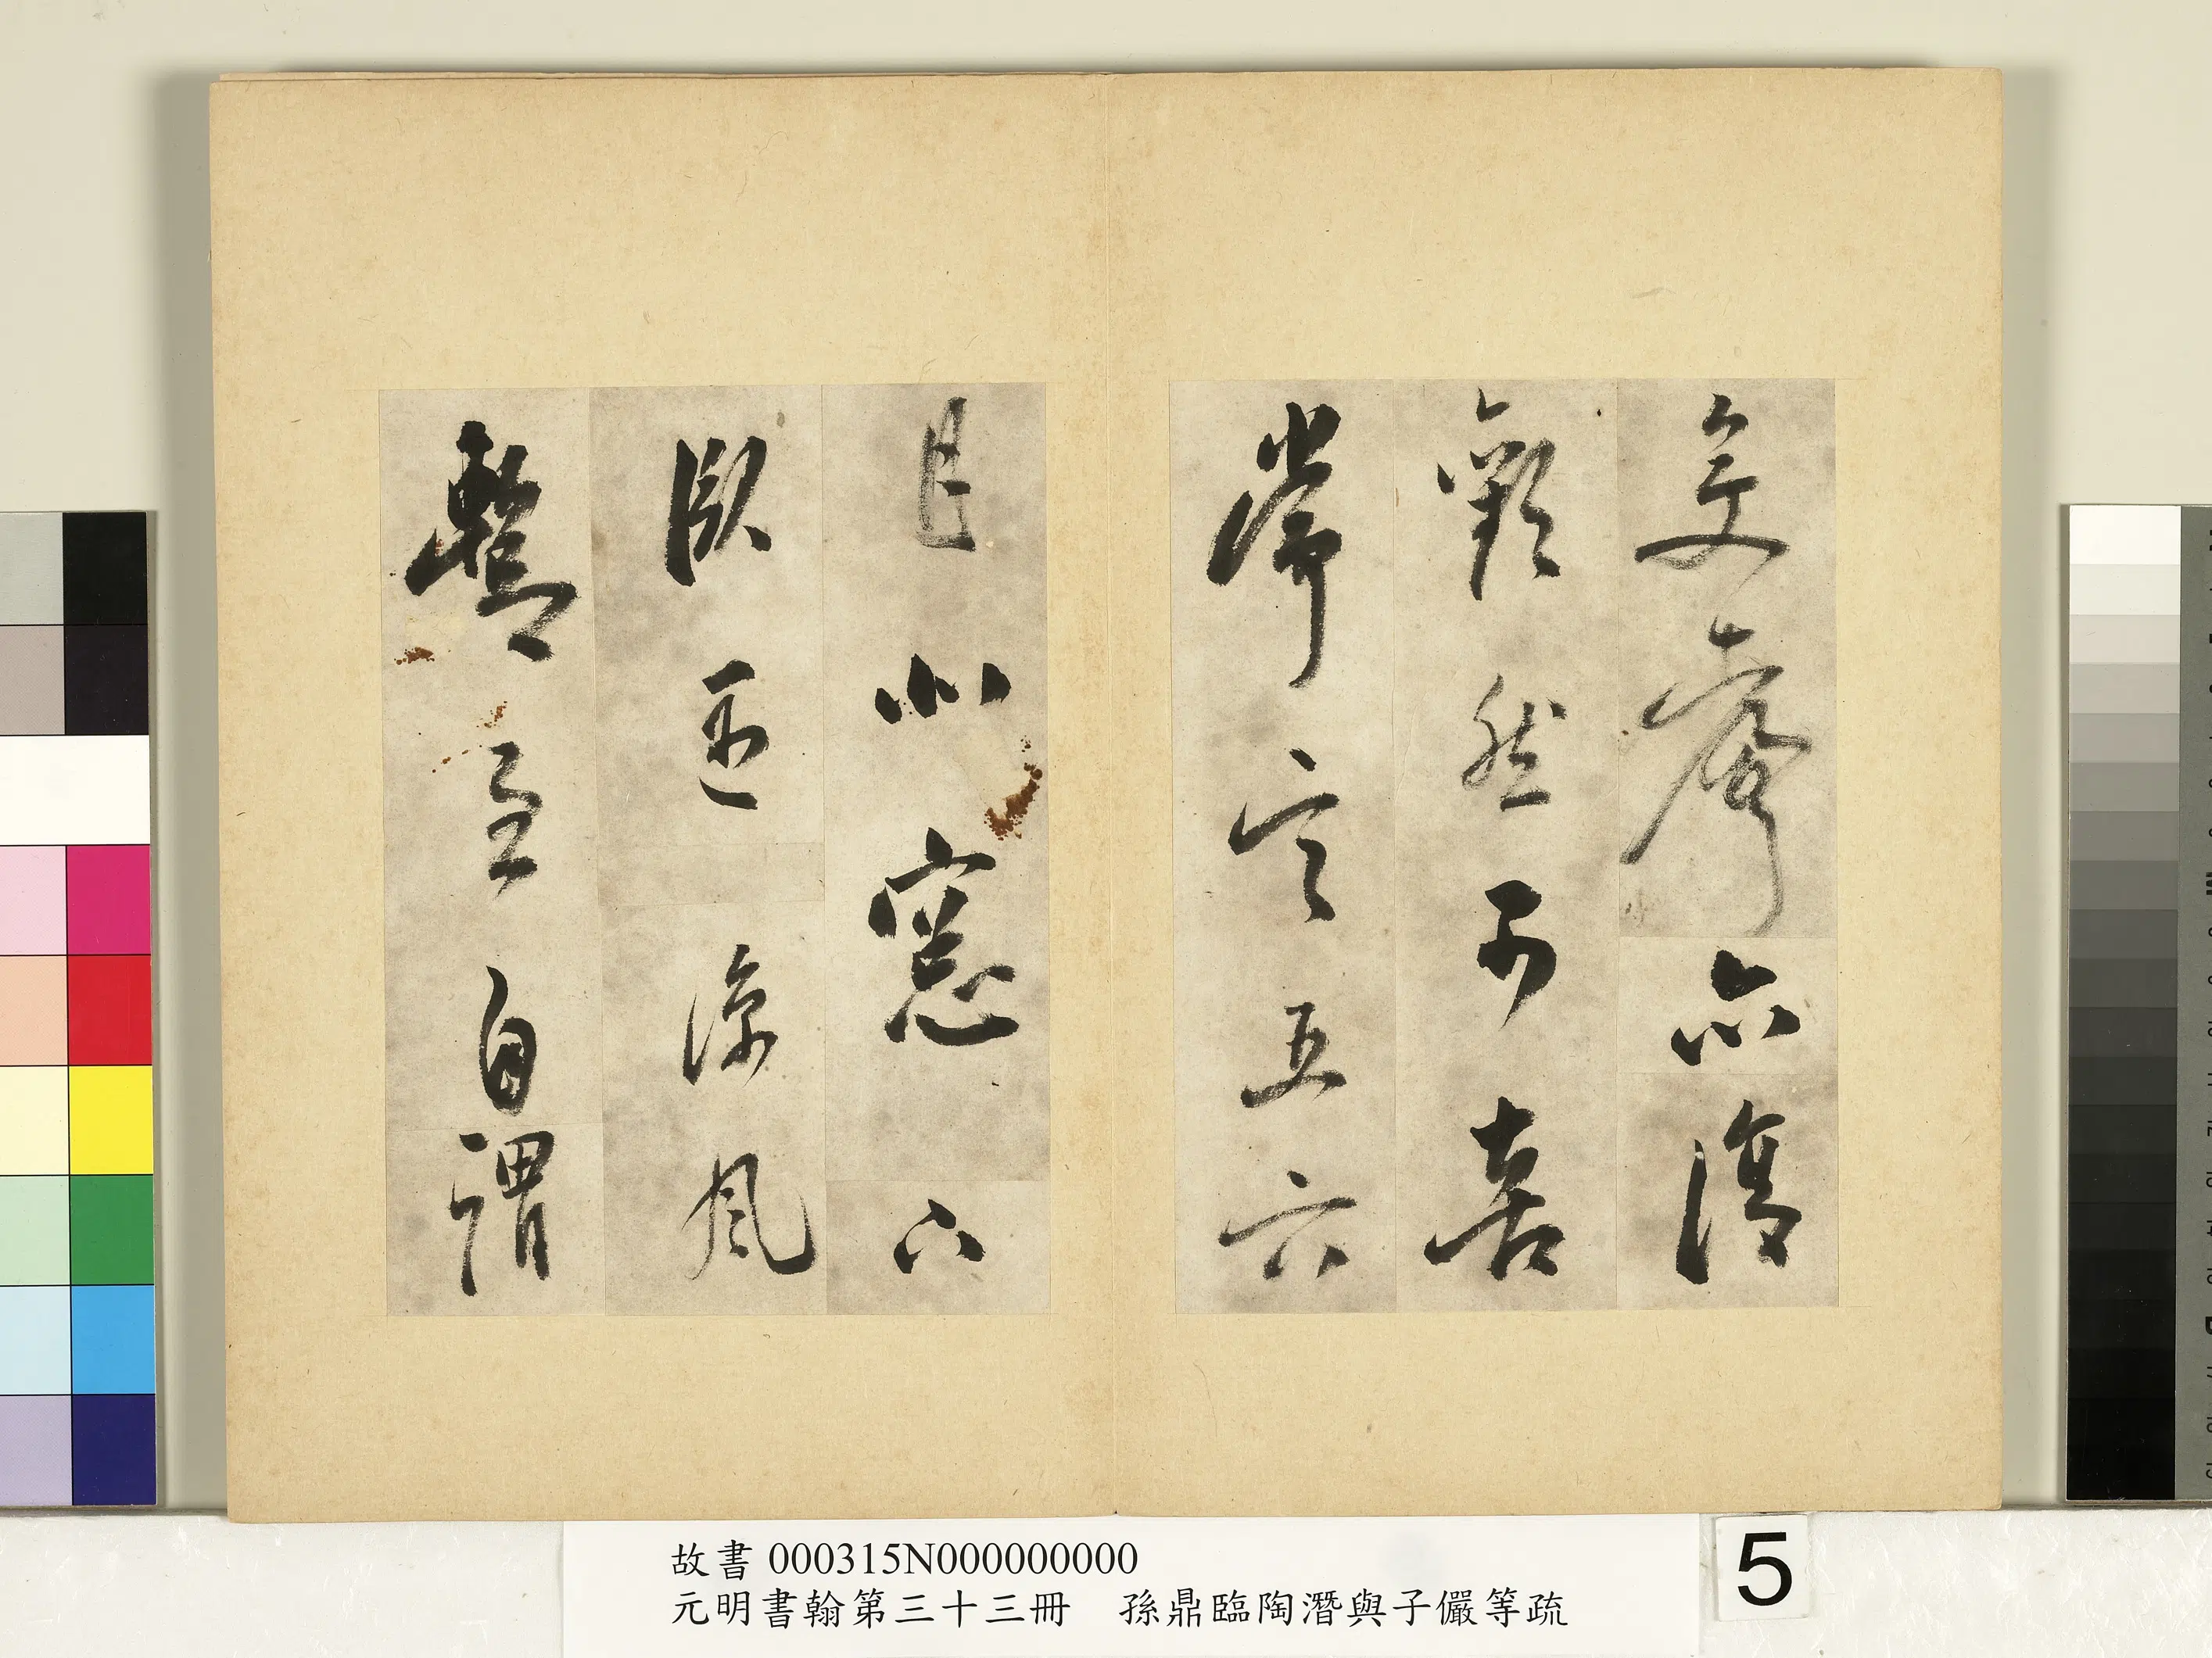 變聲亦復
歡然有喜
常言五六
月北窻下
臥遇涼風
暫至自謂
故書 000315N000000000
元明書翰第三十三冊　孫鼎臨陶潛與子儼等疏
5